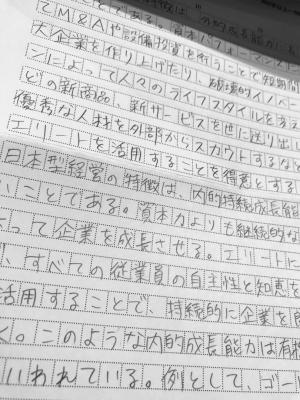 特徴は、"分析的成長能力
とである。資本パフォーマンス
てM&Aや設備投資を行うことで短期間
大企業を作り上げたり、破壊的イノベー
ンによって人々のライフスタイルを変え
どの新商品、新サービスを世に送り出
優秀な人材を外部からスカウトするなど
エリートを活用することを得意とする
日本型経営の特徴は、内的持続成長能
いことである。資本力よりも継続的な
よって企業を成長させる。エリートに
、すべての従業員の自主性と知恵を
活用することで、持続的に企業を成
く。このような内的成長能力は有機
いわれている。例として、ゴー